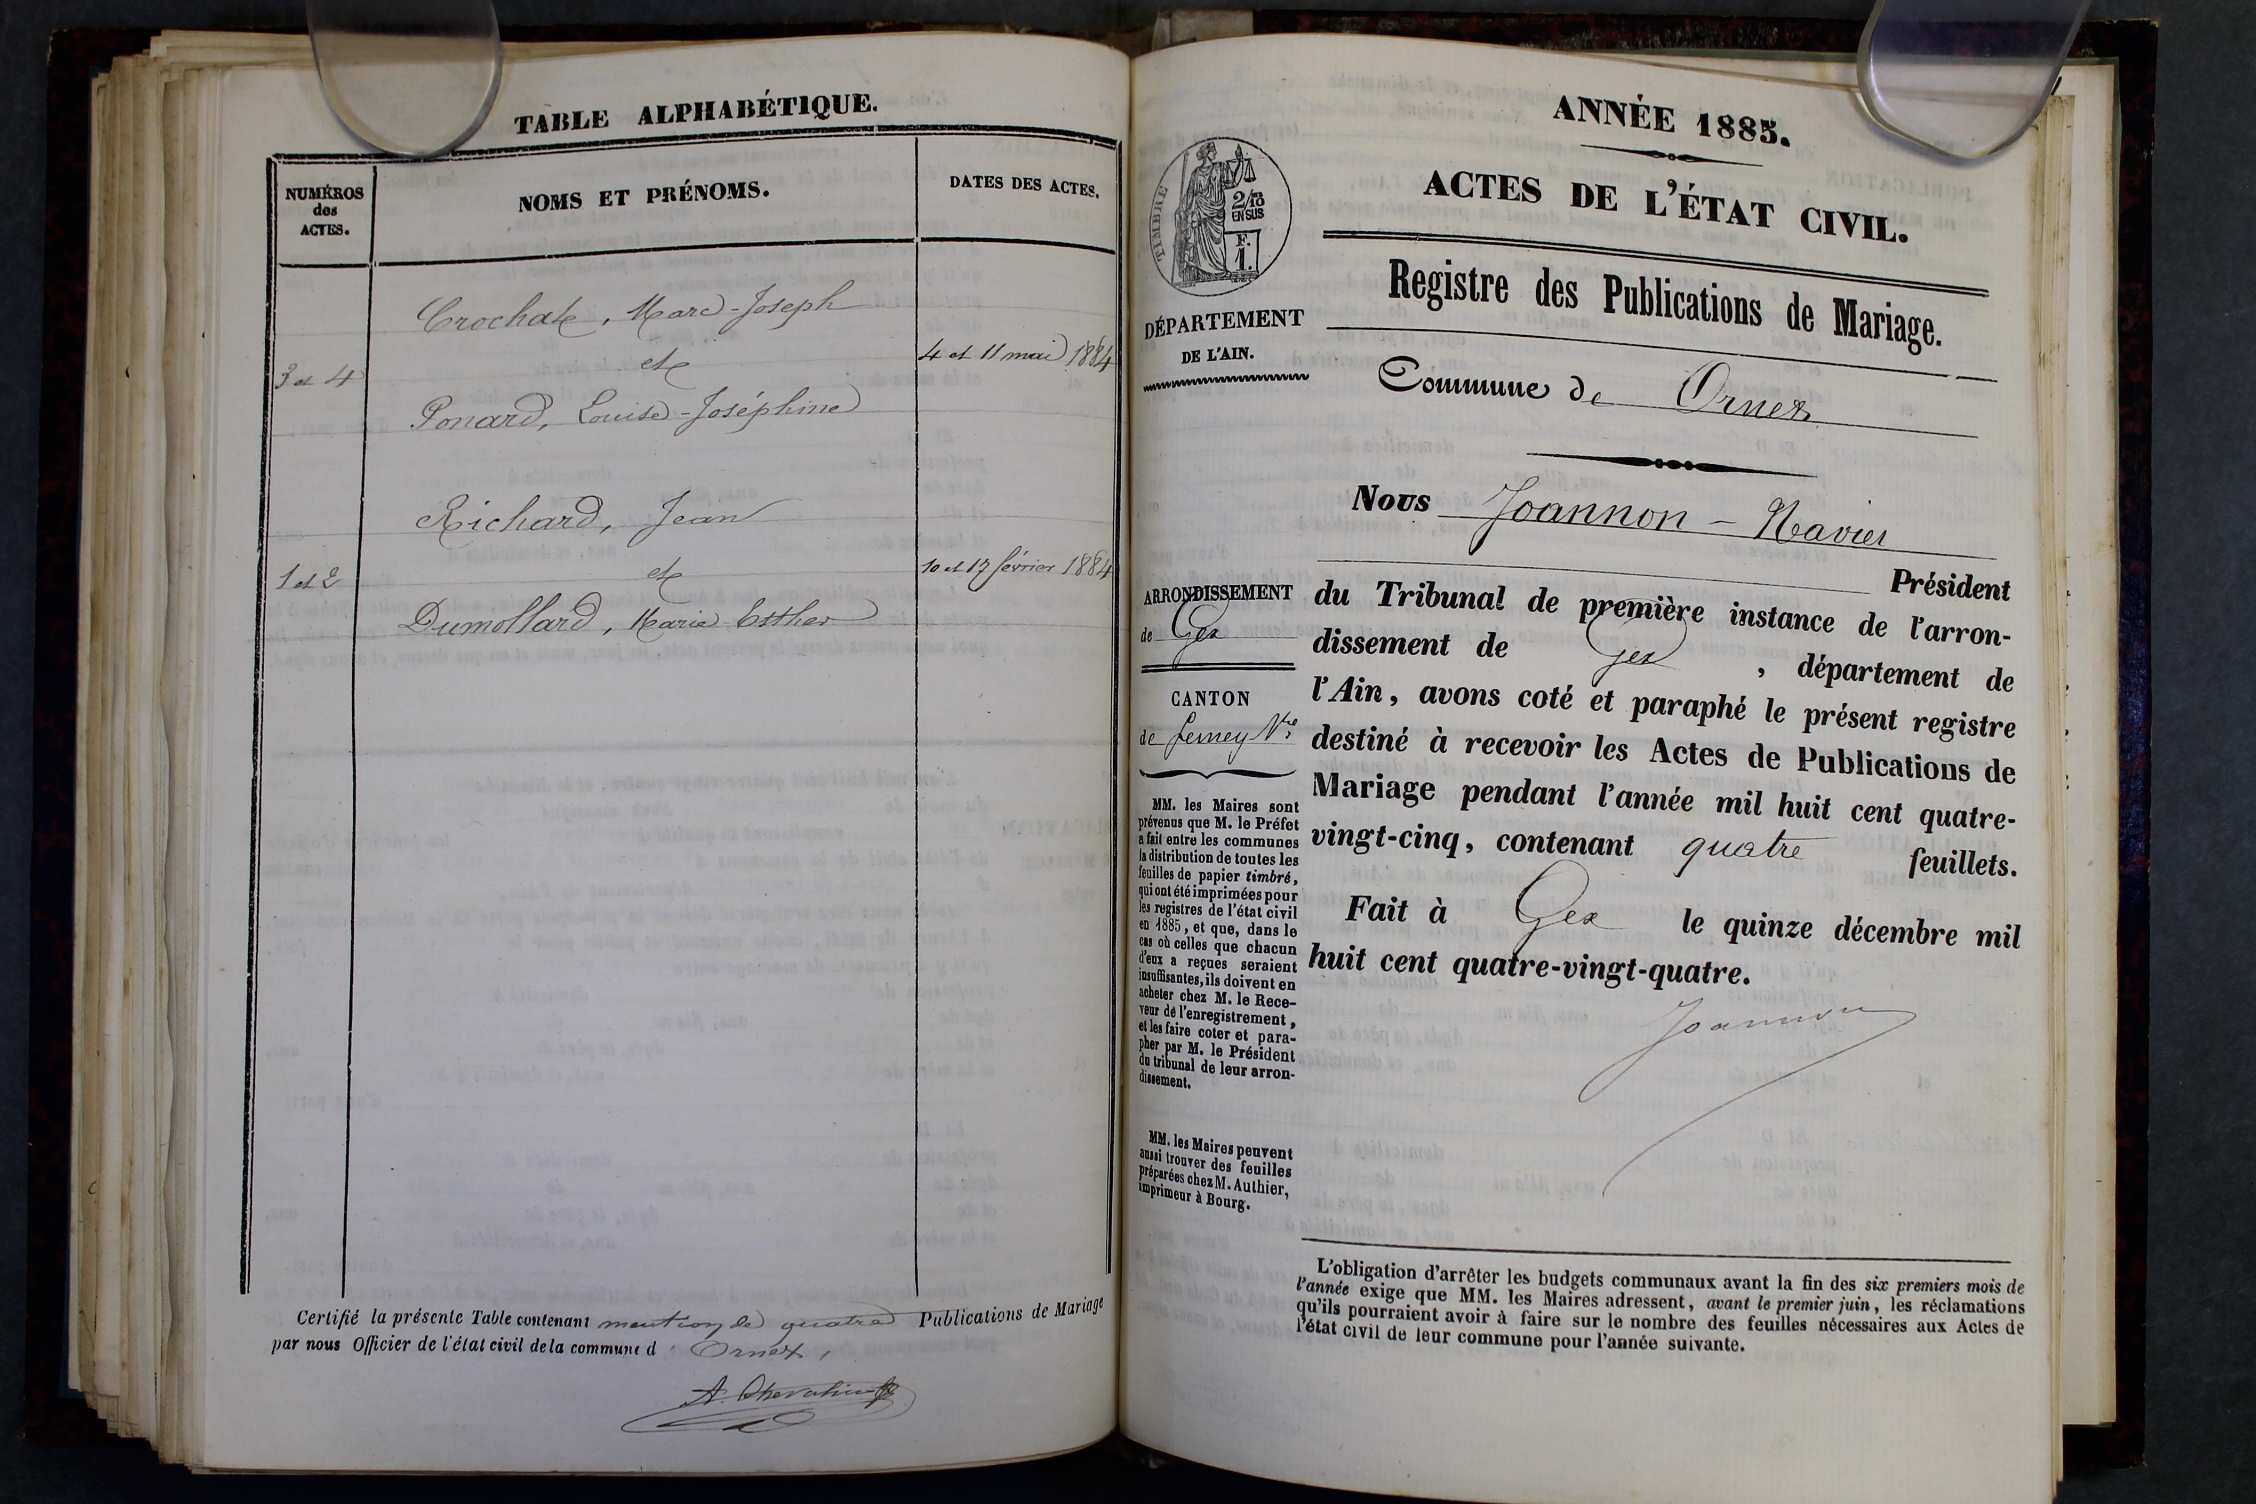 TABLE ALPHABÉTIQUE.
NUMÉROS
des
ACTES.
NOMS ET PRÉNOMS.
DATES DES ACTES.
Crochat, Marc-Joseph
3 et 4
et
4 et 11 mai 1884
Ponard, Louise-Joséphine
Richard, Jean
1 et 2
et
10 et 17 février 1884
Dumollard, Marie Esther
Certifié la présente Table contenant mention de quatre Publications de Mariage
par nous Officier de l'état civil de la commune d'Ornex,
ANNÉE 1885.
ACTES DE L'ÉTAT CIVIL.
TIMBRE
2/10
EN SUS
F.
1.
DÉPARTEMENT
DE L'AIN.
Registre des Publications de Mariage.
Commune de Ornex
Nous Joannon-Navier
Président
ARRONDISSEMENT
de Gex
CANTON
de Ferney Vre
MM. les Maires sont
prévenus que M. le Préfet
a fait entre les communes
la distribution de toutes les
feuilles de papier timbré,
qui ont été imprimées pour
les registres de l'état civil
en 1885, et que, dans le
cas où celles que chacun
d'eux a reçues seraient
insuffisantes, ils doivent en
acheter chez M. le Rece-
veur de l'enregistrement,
et les faire coter et para-
pher par M. le Président
du tribunal de leur arron-
dissement.
MM. les Maires peuvent
aussi trouver des feuilles
préparées chez M. Authier,
imprimeur à Bourg.
du Tribunal de première instance de l'arron-
dissement de Gex, département de
l'Ain, avons coté et paraphé le présent registre
destiné à recevoir les Actes de Publications de
Mariage pendant l'année mil huit cent quatre-
vingt-cinq, contenant quatre feuillets.
Fait à Gex le quinze décembre mil
huit cent quatre-vingt-quatre.
Joannon
L'obligation d'arrêter les budgets communaux avant la fin des six premiers mois de
l'année exige que MM. les Maires adressent, avant le premier juin, les réclamations
qu'ils pourraient avoir à faire sur le nombre des feuilles nécessaires aux Actes de
l'état civil de leur commune pour l'année suivante.